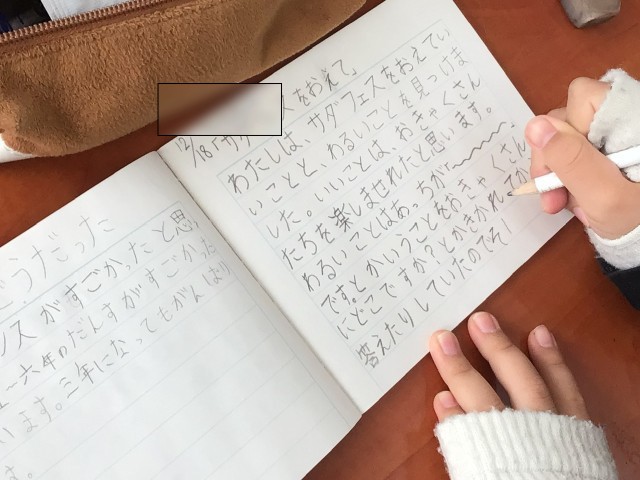 どうだった
ンスがすごかったと思
~六年のだんすがすごかった
います。三年になってもがんばり
す。
12/18「サダ スをおえて」
わたしは、サダフェスをおえてい
いことと、わるいことを見つけま
した。いいことは、おきゃくさん
たちを楽しませれたと思います。
わるいことはあっちが〜〜〜
です。とかいうことをおきゃくさん
にどこですか?とかきかれてか
答えたりしていたのでそ!